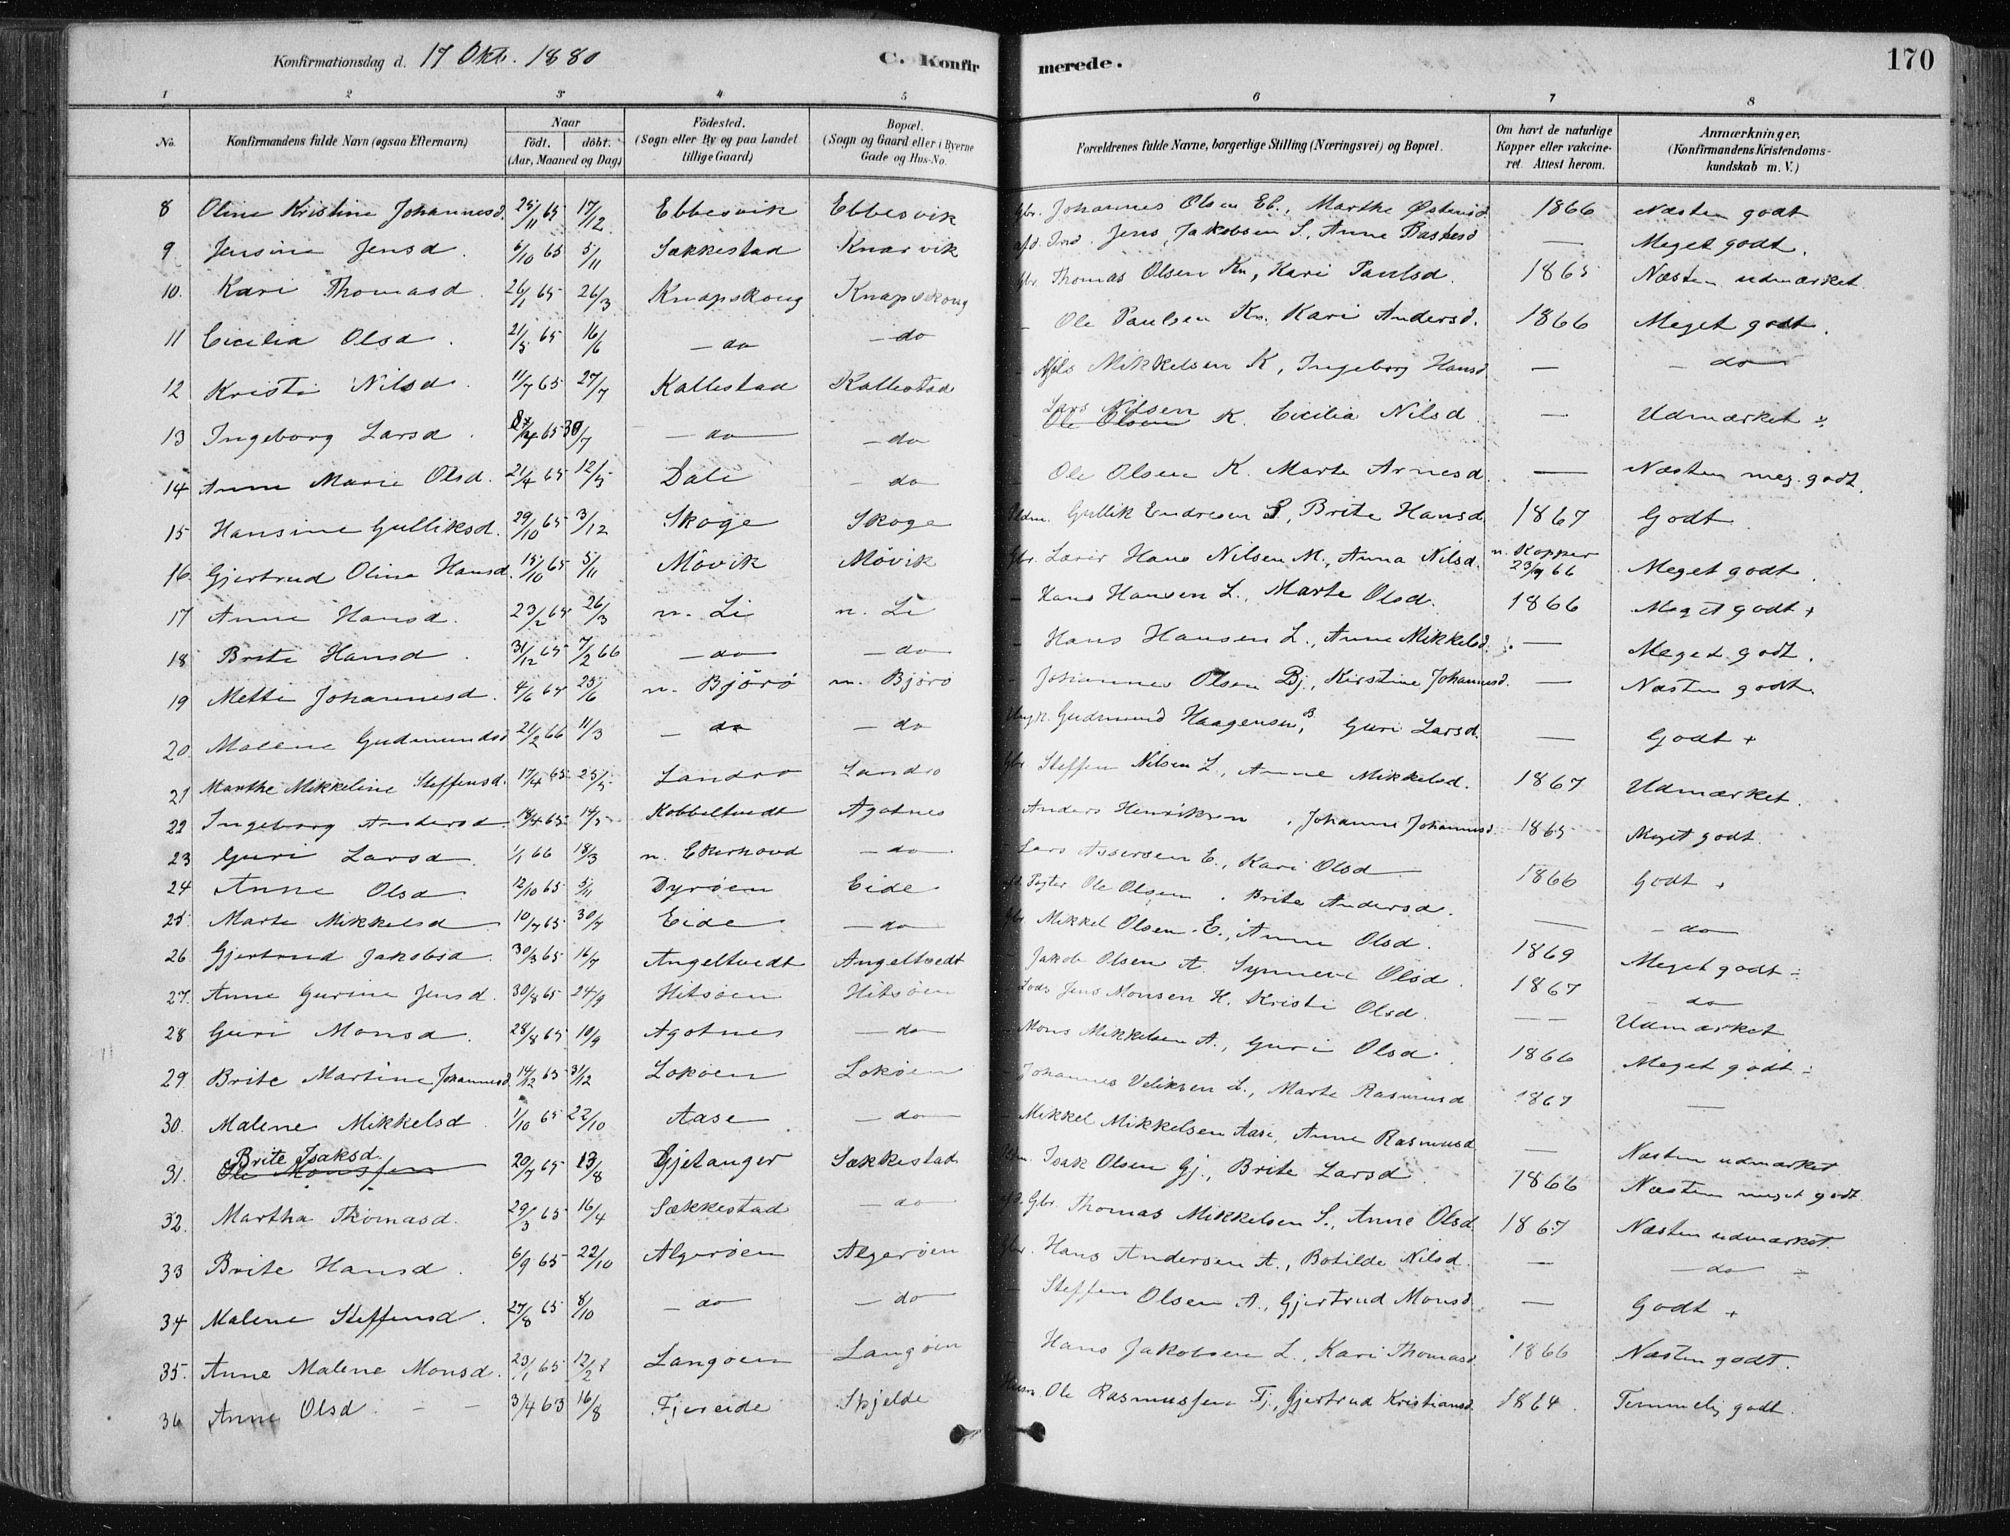 Konfirmationsdag d. 17 Okt. 1880 C. Konfir merede. 170
1 2 3 4 5 6 7 8
No. Konfirmandens fulde Navn (ogsaa Efternavn) Naar födt. döbt. (Aar, Maaned og Dag) Födested. (Sogn eller By og paa Landet tillige Gaard) Bopæl. (Sogn og Gaard eller i Byerne Gade og Hus-No. Forældrenes fulde Navne, borgerlige Stilling (Næringsvei) og Bopæl. Om havt de naturlige Kopper eller vakcineret. Attest herom. Anmærkninger. (Konfirmandens Kristendomskundskab m. V.)
8 Oline Kristine Johannesd. 25/11 65 17/12 Ebbesvik Ebbesvik Gbr. Johannes Olsen Eb., Marthe Østensd. 1866 Næsten godt
9 Jensine Jensd. 6/10 65 5/11 Sækkestad Knarvik afd. Ind. Jens Jakobsen S., Anne Bastesd — Meget godt.
10. Kari Thomasd. 26/1 65 26/3 Knapskoug Knapskoug Gbr. Thomas Olsen Kn., Kari Paulsd. 1865 Næsten udmærket.
11 Cicilia Olsd. 21/5 65 16/6 — do — do - Ole Paulsen Kn. Kari Andersd. 1866 Meget godt.
12 Kristi Nilsd. 11/7 65 27/7 Kallestad Kallestad - Nils Mikkelsen K, Ingeborg Hansd — — do
13 Ingeborg Larsd. 65 30/7 — do — do Lars Nilsen Ole Olsen K. Cicilia Nilsd — Udmærket ÷
14 Anne Marie Olsd. 21/4 65 12/5 Dale — do - Ole Olsen K. Marte Arnesd. — Næsten meg. godt.
15 Hansine Gulliksd. 29/10 65 3/12 Skoge Skoge Gullik Endresen S, Brite Hansd. 1867 Godt
16. Gjertrud Oline Hansd. 15/10 65 5/11 Møvik Møvik Gbr. Lærer Hans Nilsen M., Anna Nilsd. n. Kopper 23/9 66 Meget godt.
17 Anne Hansd. 23/2 65 26/3 n. Li n. Li - Hans Hansen L., Marte Olsd. 1866 Meget godt +
18 Brite Hansd. 31/12 65 7/2 66 — do — do - Hans Hansen L., Anne Mikkelsd. — Meget godt.
19 Metti Johannesd. 4/6 65 25/6 n. Bjørø n. Bjørø - Johannes Olsen Bj., Kirstine Johannesd. — Næsten godt.
20 Malene Gudmundsd 21/2 66 11/3 — do — do Ungk. Gudmund Haagensen B, Guri Larsd. — Godt +
21 Marthe Mikkeline Steffensd. 17/4 65 25/5 Landro Landro Gbr. Steffen Nilsen L., Anne Mikkelsd. 1867 Udmærket.
22 Ingeborg Andersd. 65 14/5 Kobbeltvedt Agotnes Anders Henriksen, Johanne Johannesd. 1865 Meget godt.
23 Guri Larsd. 1/1 66 18/3 n. Ekerhovd — do Lars Assersen E., Kari Olsd — 1866 Godt +
24 Anne Olsd. 12/10 65 5/11 Dyrøen Eide Ole Olsen, Brite Andersd. — — do
25 Marte Mikkelsd 10/7 65 30/7 Eide — do Gbr. Mikkel Olsen E., Anne Olsd. 1869 Meget godt ÷
26 Gjertrud Jakobsd. 30/3 65 16/7 Angeltvedt Angeltvedt - Jakob Olsen A. Synneve Olsd. 1867 — do
27. Anne Gurine Jensd. 30/8 65 24/9 Hitsøen Hitsøen Lods Jens Monsen H. Kristi Olsd. — — Udmærket
28 Guri Monsd. 28/8 65 10/9 Agotnes — do - Mons Mikkelsen A., Guri Olsd. 1866 Meget godt ÷
29 Brite Martine Johannesd. 14/12 65 31/12 Lokøen Lokøen - Johannes Veliksen L., Marte Rasmusd 1867 —
30. Malene Mikkelsd. 1/10 65 22/10 Aase — do - Mikkel Mikkelsen Aase, Anne Rasmusd — Næsten udmærket
31. Brite Isaksd. Ole Monssen 20/7 65 13/8 Gjetanger Sækkestad Isak Olsen Gj., Brite Larsd. 1866 Næsten meget godt.
32. Martha Thomasd. 29/3 65 16/4 Sækkestad — do afd. Gbr. Thomas Mikkelsen S., Anne Olsd. 1867 Næsten udmærket.
33 Brite Hansd. 6/9 65 22/10 Algerøen Algerøen Gbr. Hans Andersen A., Botilde Nilsd. — — do ÷
34 Malene Steffensd. 27/8 65 8/10 — do — do - Steffen Olsen A., Gjertrud Monsd. — Godt +
35. Anne Malene Monsd. 23/1 65 12/2 Langøen Langøen Hans Jakobsen L., Kari Thomasd. 1866 Næsten godt.
36 Anne Olsd. 3/4 63 16/8 Fjereide Skjelde Husm. Ole Rasmussen Fj., Gjertrud Kristiansd. 1864. Temmelig godt.